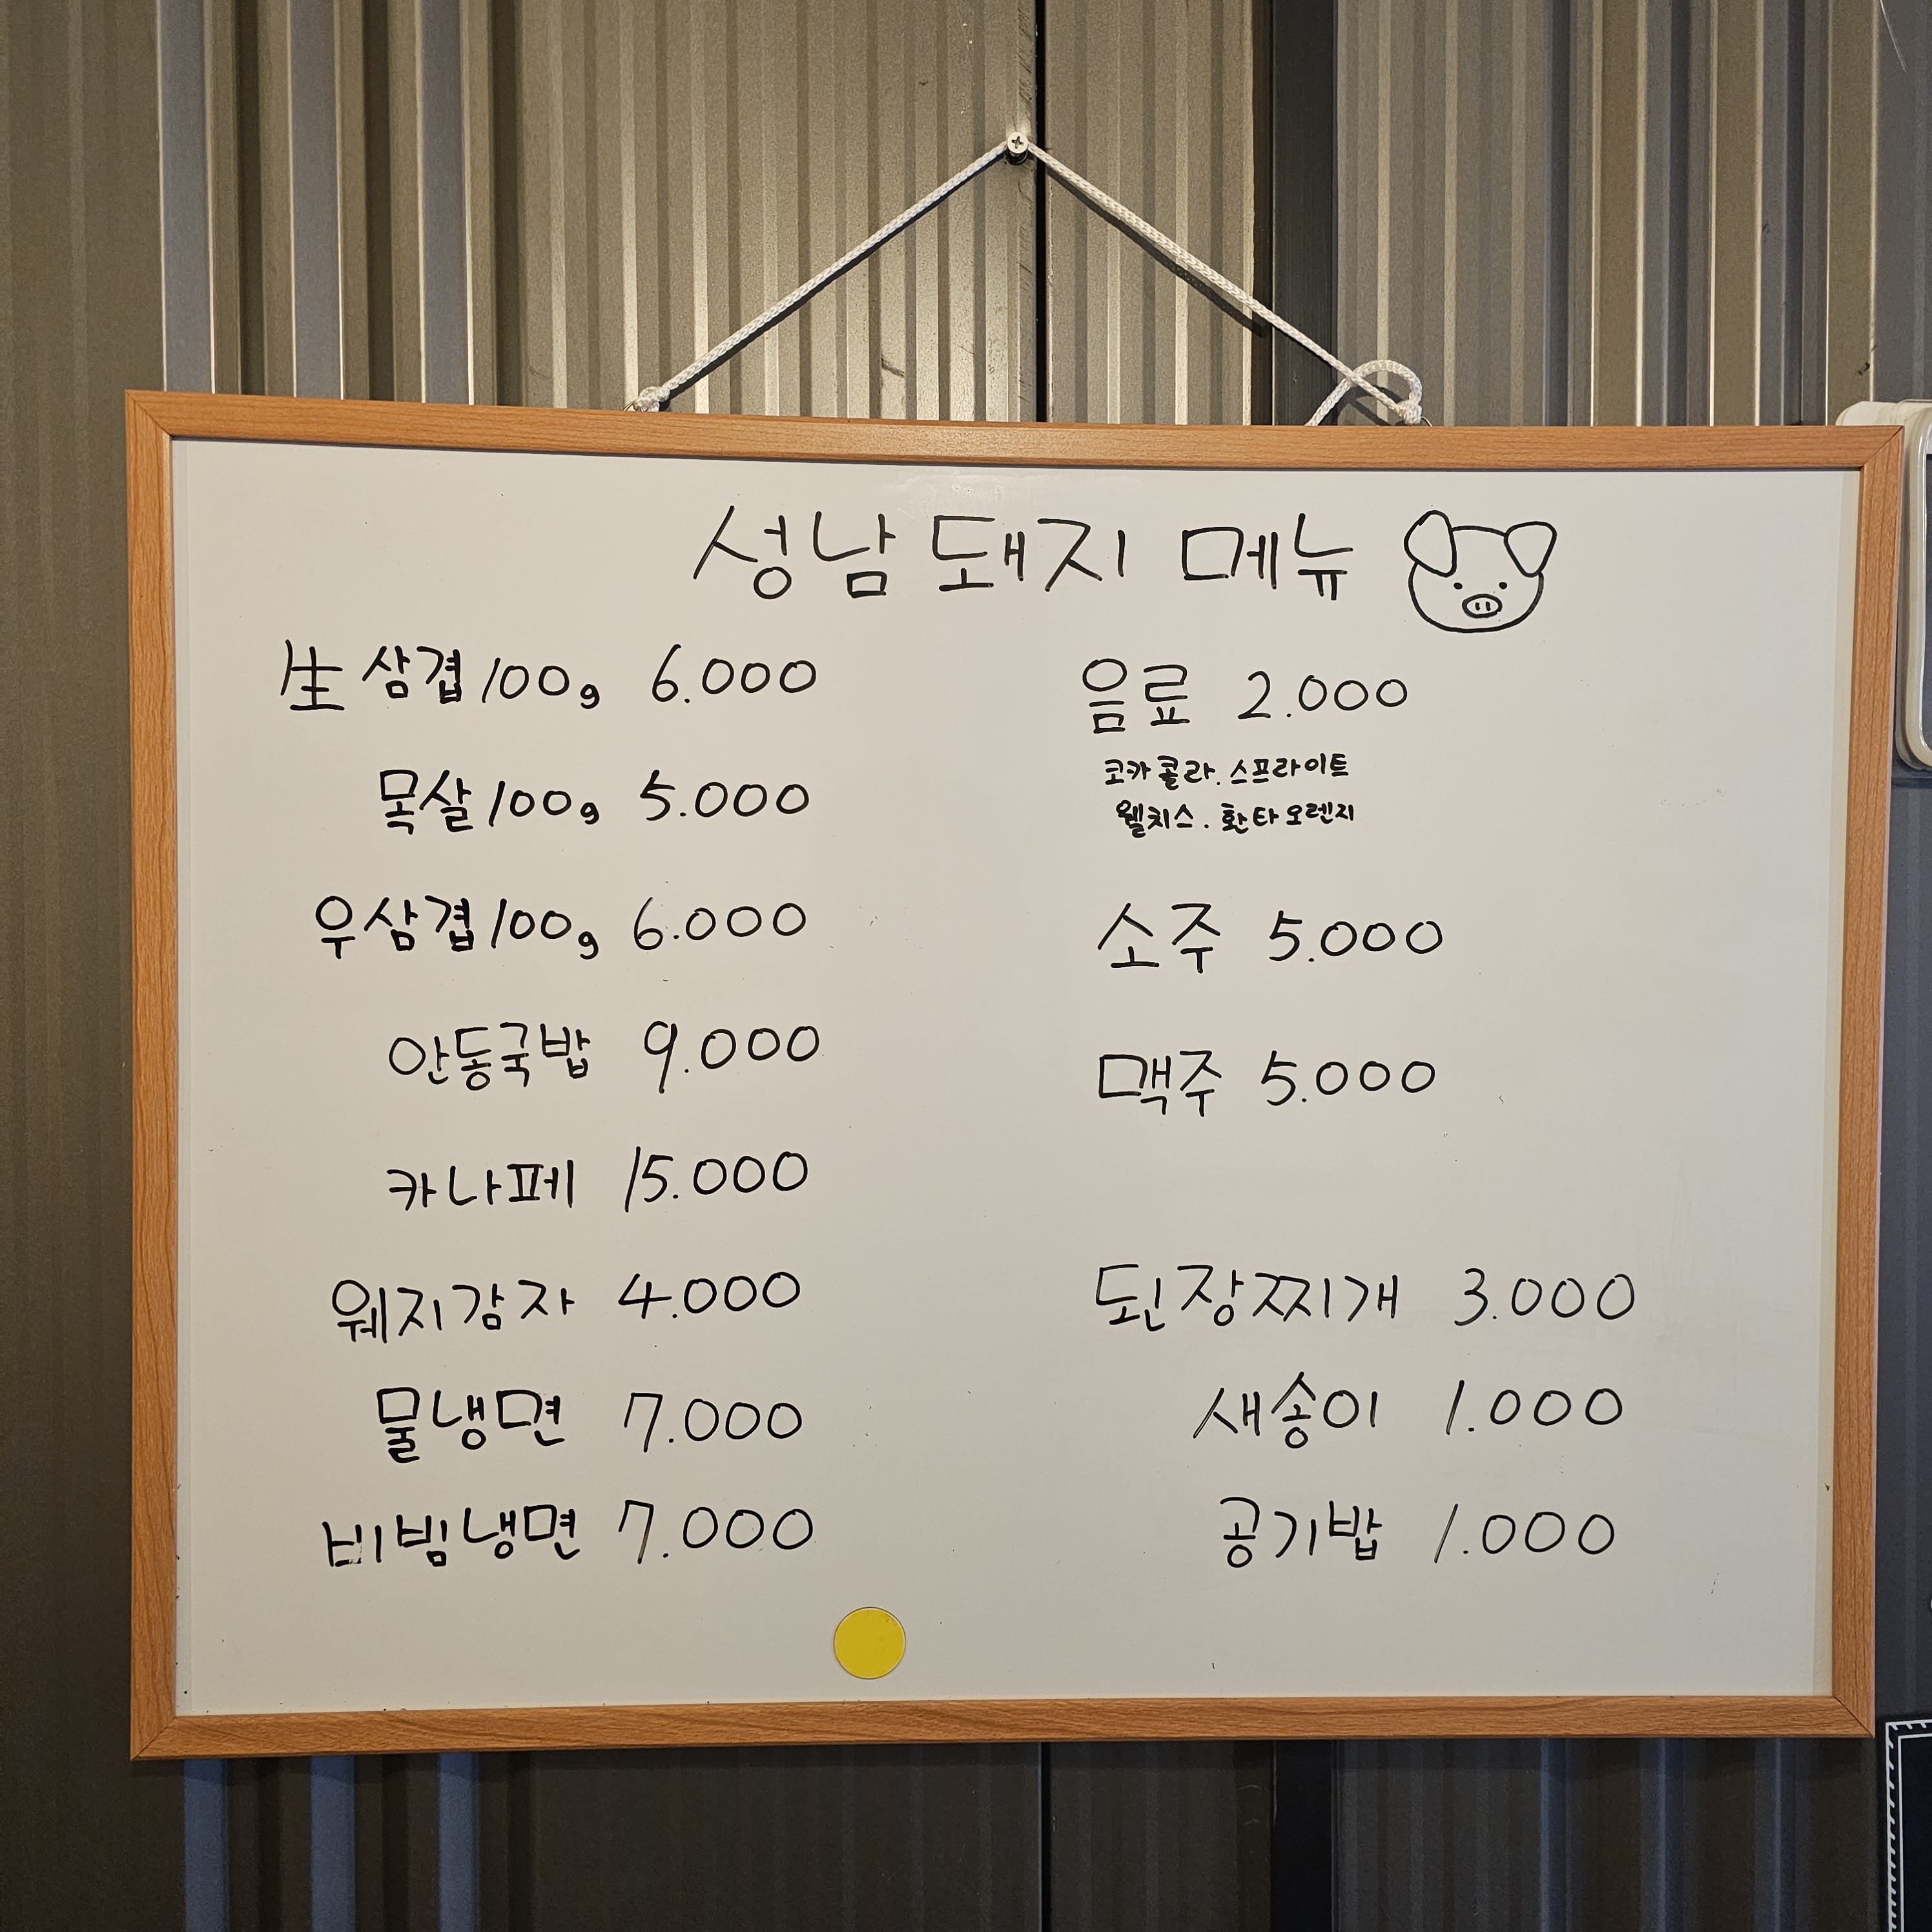 성남돼지 메뉴
生삼겹100g 6.000
목살100g 5.000
우삼겹100g 6.000
안동국밥 9.000
카나페 15.000
웨지감자 4.000
물냉면 7.000
비빔냉면 7.000
음료 2.000
코카콜라. 스프라이트
웰치스. 환타오렌지
소주 5.000
맥주 5.000
된장찌개 3.000
새송이 1.000
공기밥 1.000